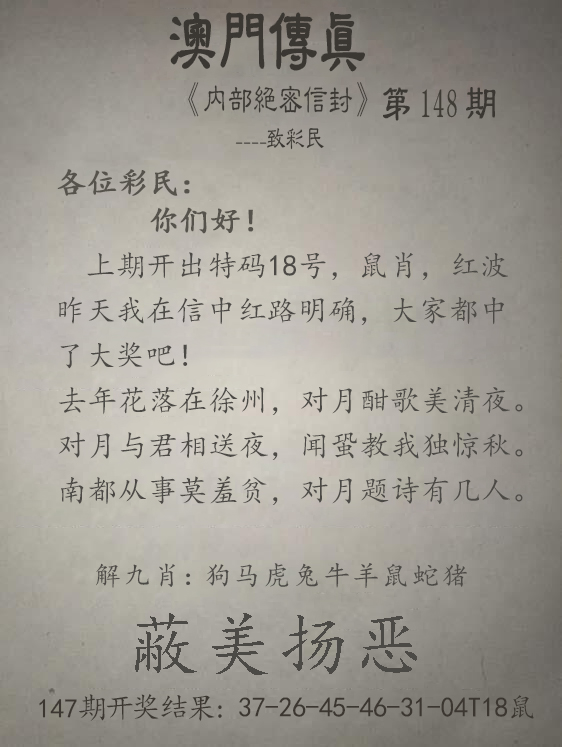 澳門傳真
《内部絕密信封》第148期
----致彩民
各位彩民：
你们好！
上期开出特码18号，鼠肖，红波
昨天我在信中红路明确，大家都中
了大奖吧！
去年花落在徐州，对月酣歌美清夜。
对月与君相送夜，闻蛩教我独惊秋。
南都从事莫羞贫，对月题诗有几人。
解九肖：狗马虎兔牛羊鼠蛇猪
蔽美扬恶
147期开奖结果：37-26-45-46-31-04T18鼠